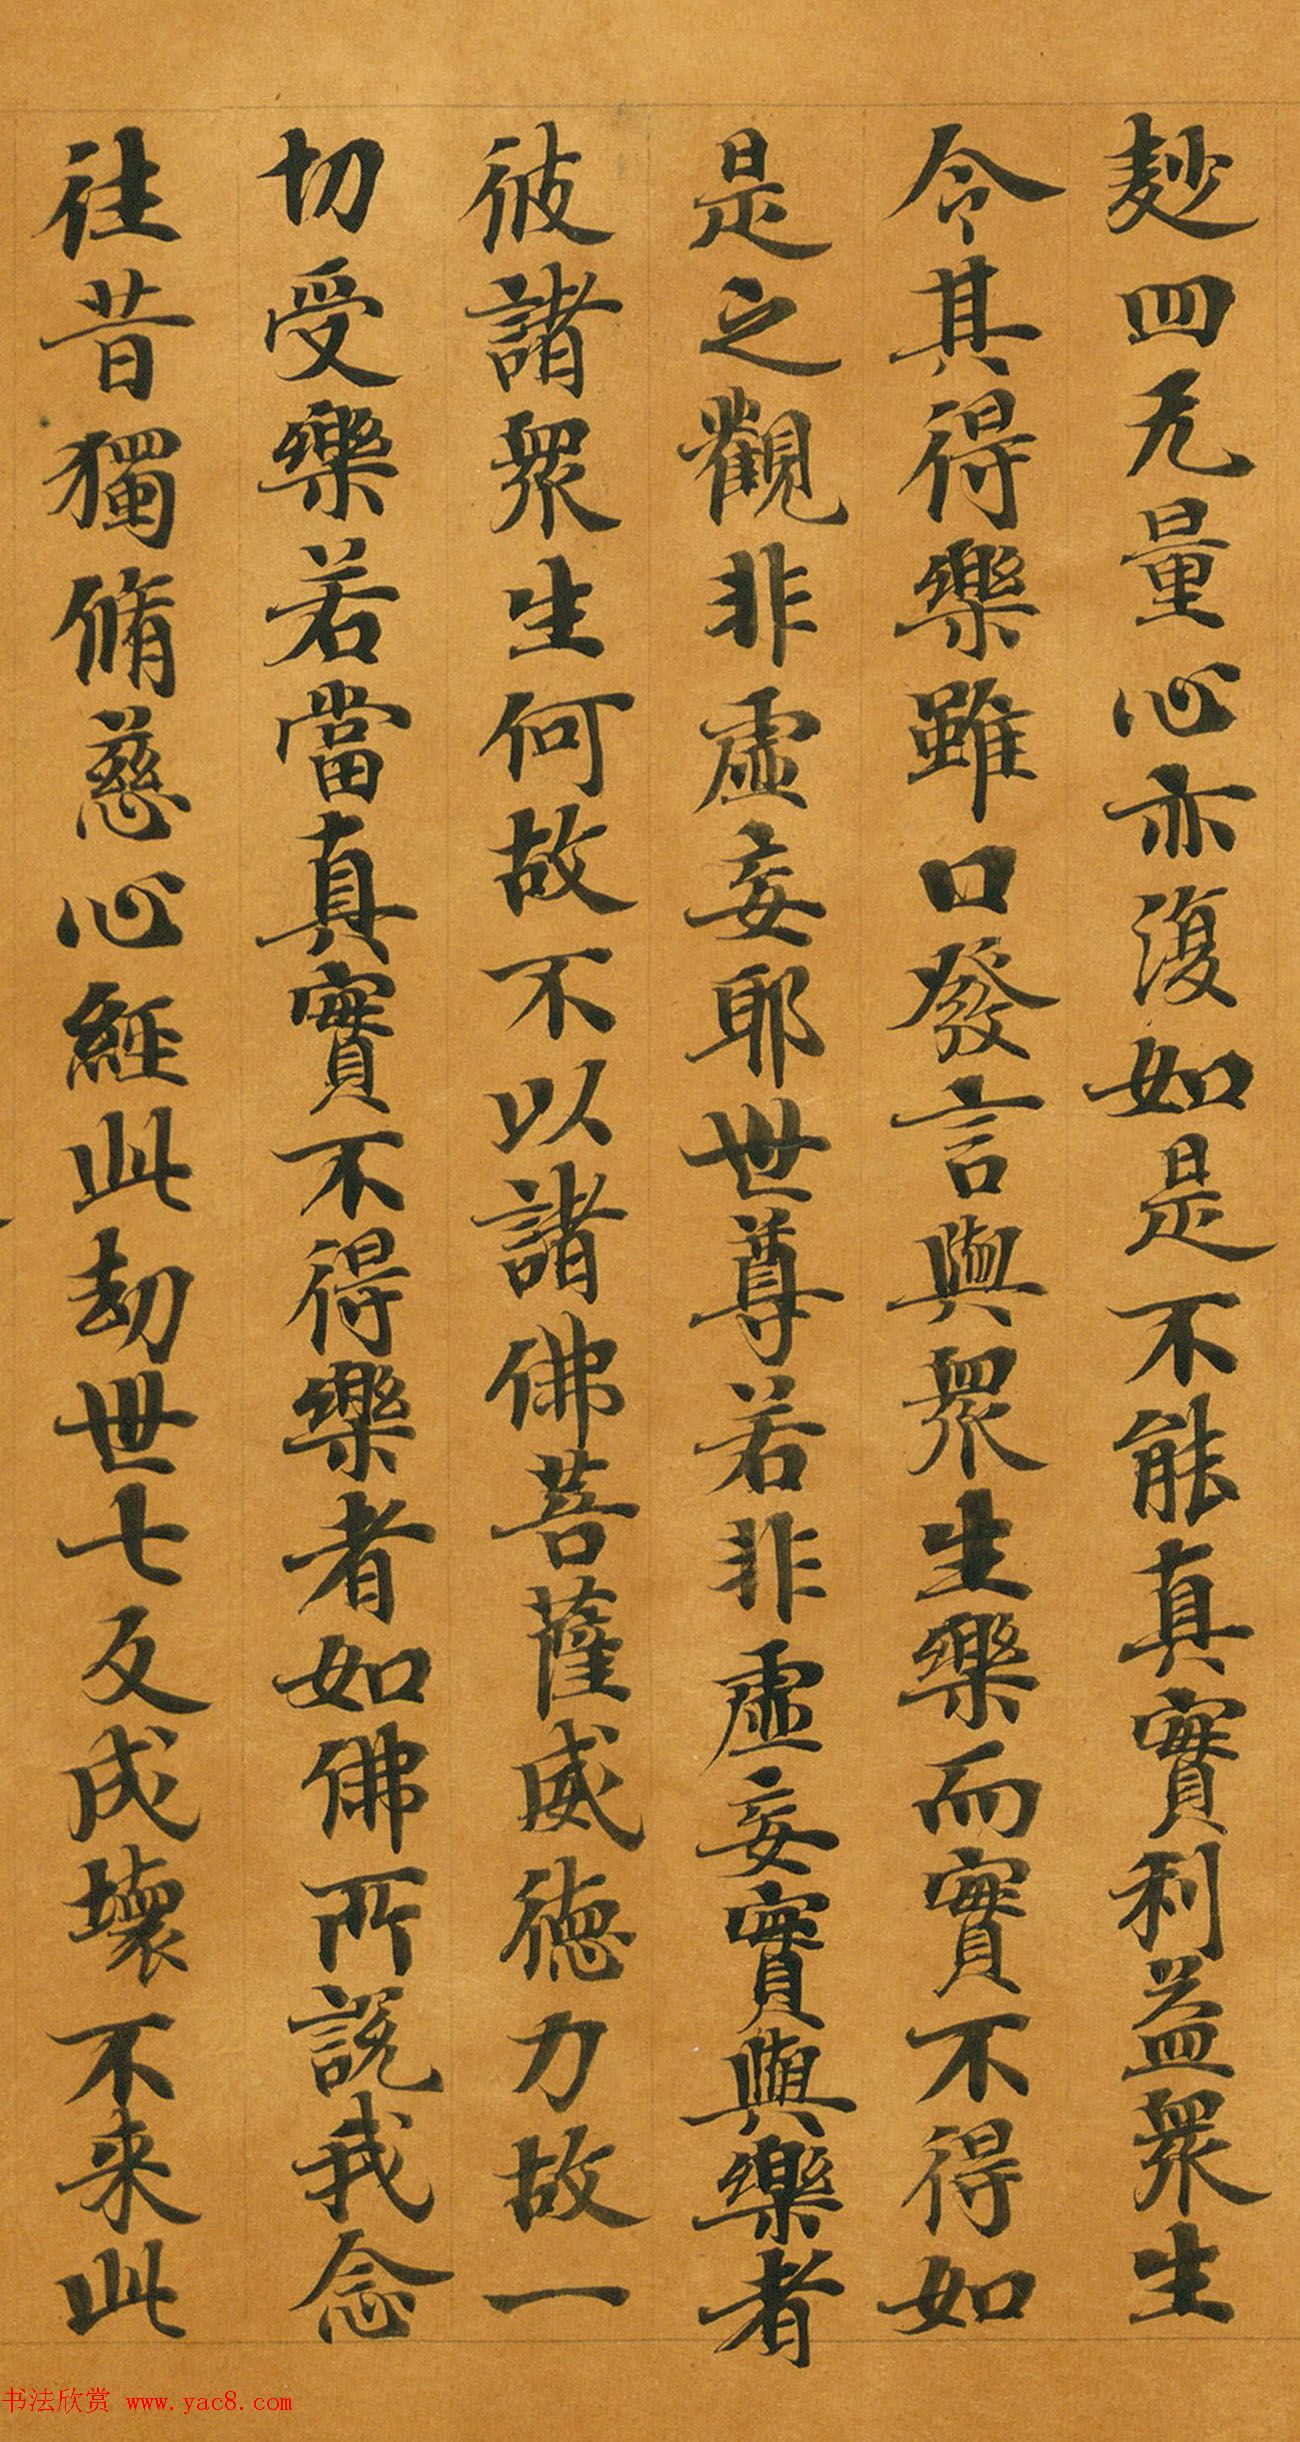 麨四无量心亦復如是不能真實利益眾生
令其得樂雖口發言與眾生樂而實不得如
是之觀非虛妄耶世尊若非虛妄實與樂者
彼諸眾生何故不以諸佛菩薩威德力故一
切受樂若當真實不得樂者如佛所說我念
往昔獨脩慈心經此劫世七反成壞不来此
书法欣赏 www.yac8.com